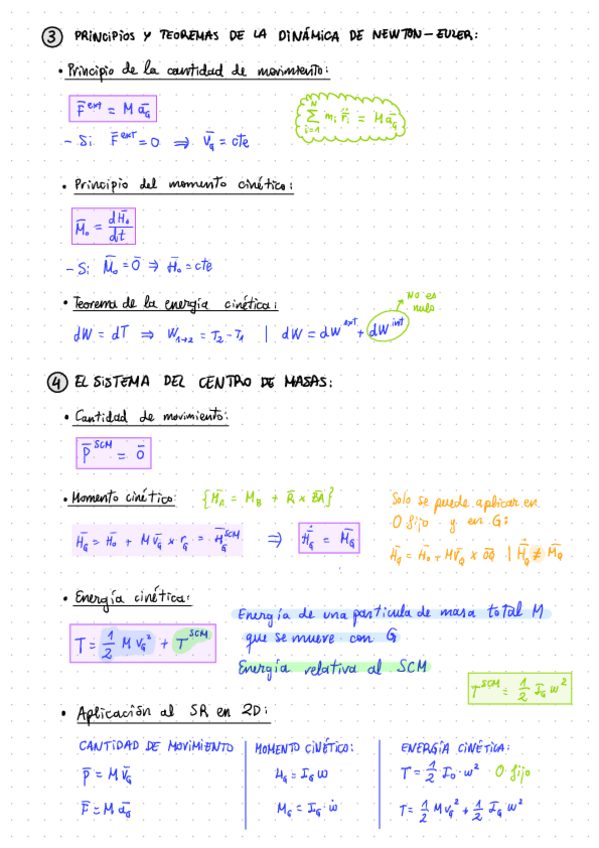 ③ PRINCIPIOS Y TEOREMAS DE LA DINÁMICA DE NEWTON-EULER:
• Principio de la cantidad de movimiento:
F̄ᵉˣᵗ = M āG
Σ_{i=1}^{N} mᵢ r̈ᵢ = M āG
- Si F̄ᵉˣᵀ = 0 ⇒ v̄G = cte
• Principio del momento cinético:
M̄o = dH̄o/dt
- Si M̄o = 0̄ ⇒ H̄o = cte
• Teorema de la energía cinética:
No es nulo
dW = dT ⇒ W₁→₂ = T₂ - T₁ | dW = dWᵉˣᵀ + dWⁱⁿᵗ
④ EL SISTEMA DEL CENTRO DE MASAS:
• Cantidad de movimiento:
P̄ˢᶜᴹ = 0̄
• Momento cinético: {H̄A = MB + R̄ × B̄Ā}
Solo se puede aplicar en
O fijo y en G:
H̄G = H̄o + M v̄G × r̄G = H̄Gˢᶜᴹ ⇒ H̄̇G = M̄G
H̄G = H̄o + M v̄G × ŌḠ | H̄̇Q ≠ M̄Q
• Energía cinética:
T = 1/2 M vG² + Tˢᶜᴹ
Energía de una partícula de masa total M
que se mueve con G
Energía relativa al SCM
Tˢᶜᴹ = 1/2 IG ω²
• Aplicación al SR en 2D:
CANTIDAD DE MOVIMIENTO | MOMENTO CINÉTICO: | ENERGÍA CINÉTICA:
P̄ = M v̄G | HG = IG ω | T = 1/2 Io · ω² O fijo
F̄ = M āG | MG = IG · ω̇ | T = 1/2 M vG² + 1/2 IG ω²